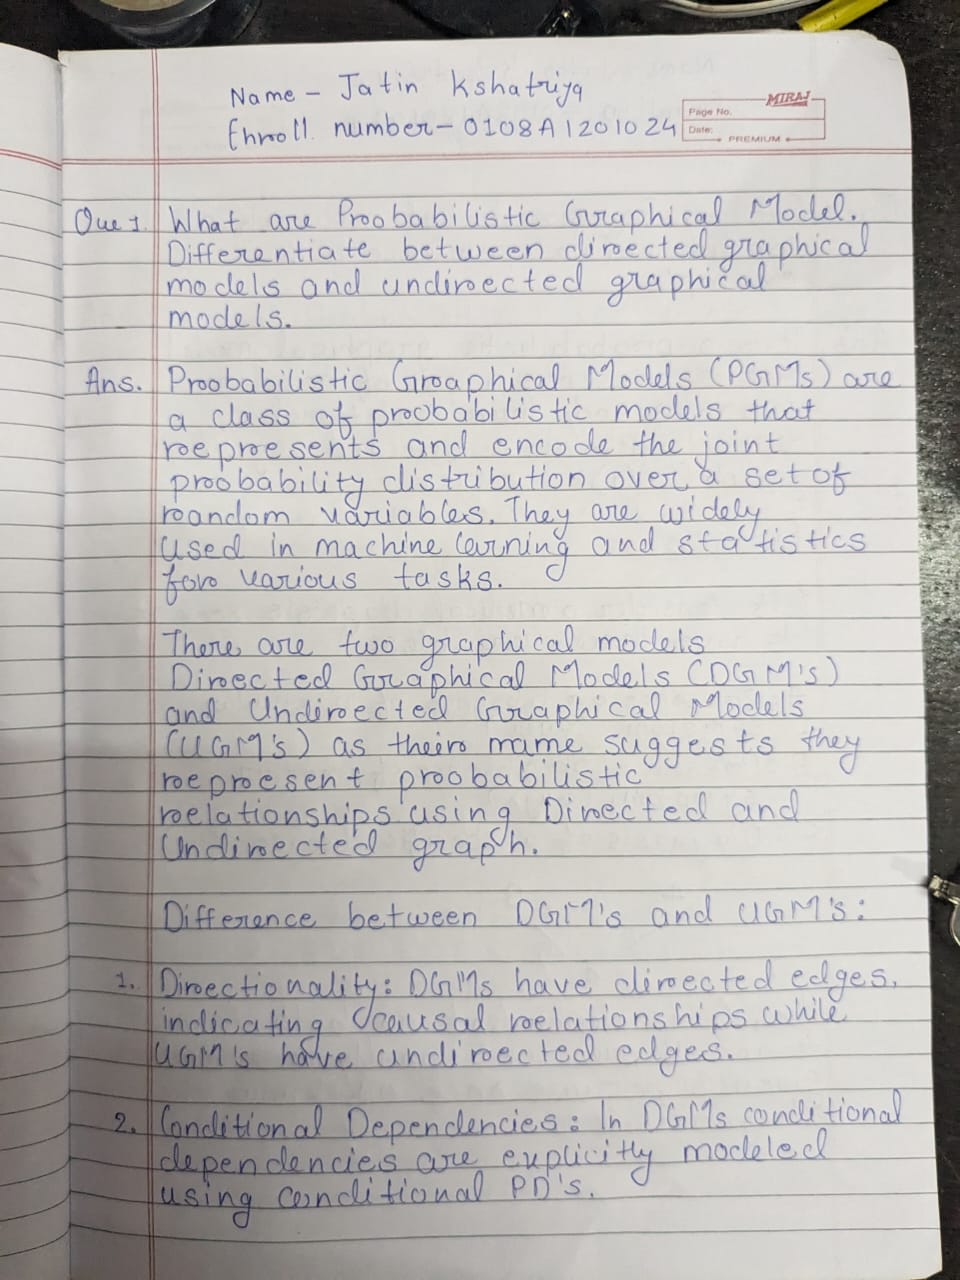 Name - Jatin Kshatriya
Enroll number - 0108AI201024
MIRAJ
Page No.
Date:
PREMIUM
Que 1. What are Probabilistic Graphical Model.
Differentiate between directed graphical
models and undirected graphical
models.
Ans. Probabilistic Graphical Models (PGMs) are
a class of probabilistic models that
represents and encode the joint
probability distribution over a set of
random variables. They are widely
used in machine learning and statistics
for various tasks.
There are two graphical models
Directed Graphical Models (DGM's)
and Undirected Graphical Models
(UGM's) as their name suggests they
represent probabilistic
relationships using Directed and
Undirected graph.
Difference between DGM's and UGM's:
1. Directionality: DGMs have directed edges,
indicating causal relationships while
UGM's have undirected edges.
2. Conditional Dependencies: In DGMs conditional
dependencies are explicitly modeled
using conditional PD's.